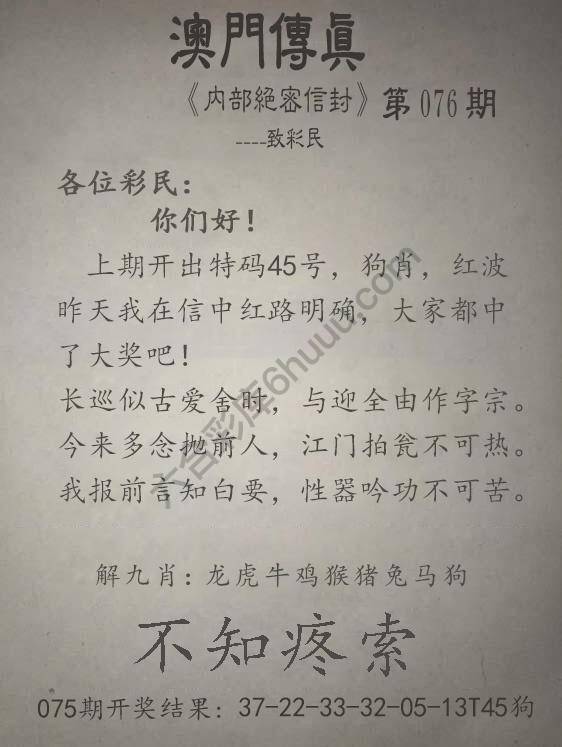 澳門傳眞
《内部絕密信封》第076期
----致彩民
各位彩民：
你们好！
上期开出特码45号，狗肖，红波
昨天我在信中红路明确，大家都中
了大奖吧！
长巡似古爱舍时，与迎全由作字宗。
今来多念抛前人，江门拍瓮不可热。
我报前言知白要，性器吟功不可苦。
解九肖：龙虎牛鸡猴猪兔马狗
不知疼索
075期开奖结果：37-22-33-32-05-13T45狗
六合彩库6huuu.com